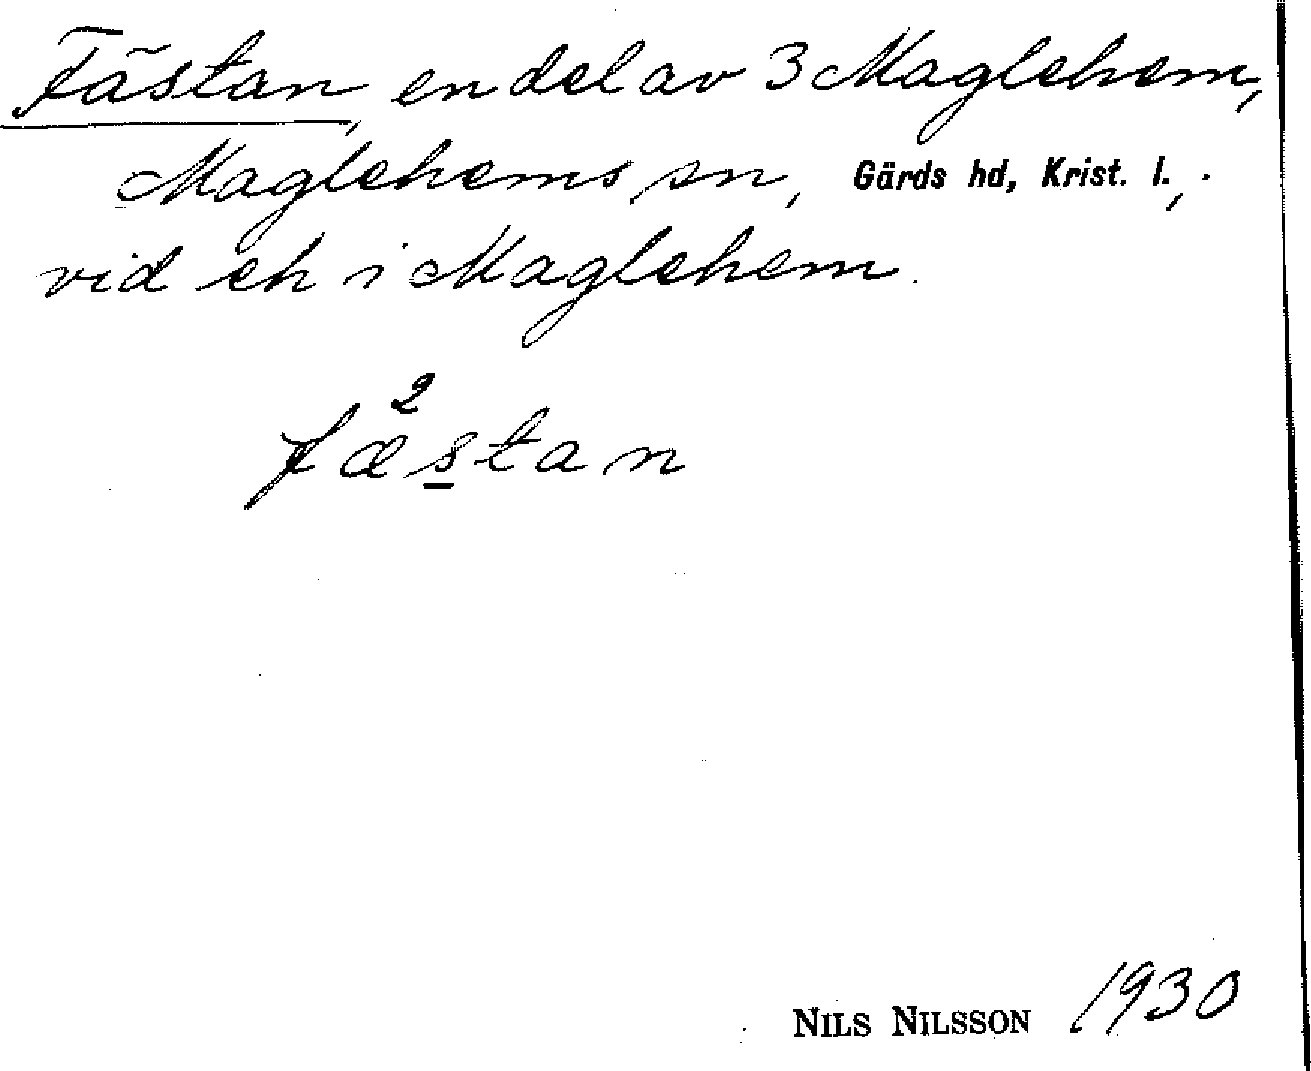 Fästan, en del av 3 Maglehem,
Maglehems sn, Gärds hd, Krist. l.,
vid eh i Maglehem.
2
fæstan
NILS NILSSON 1930